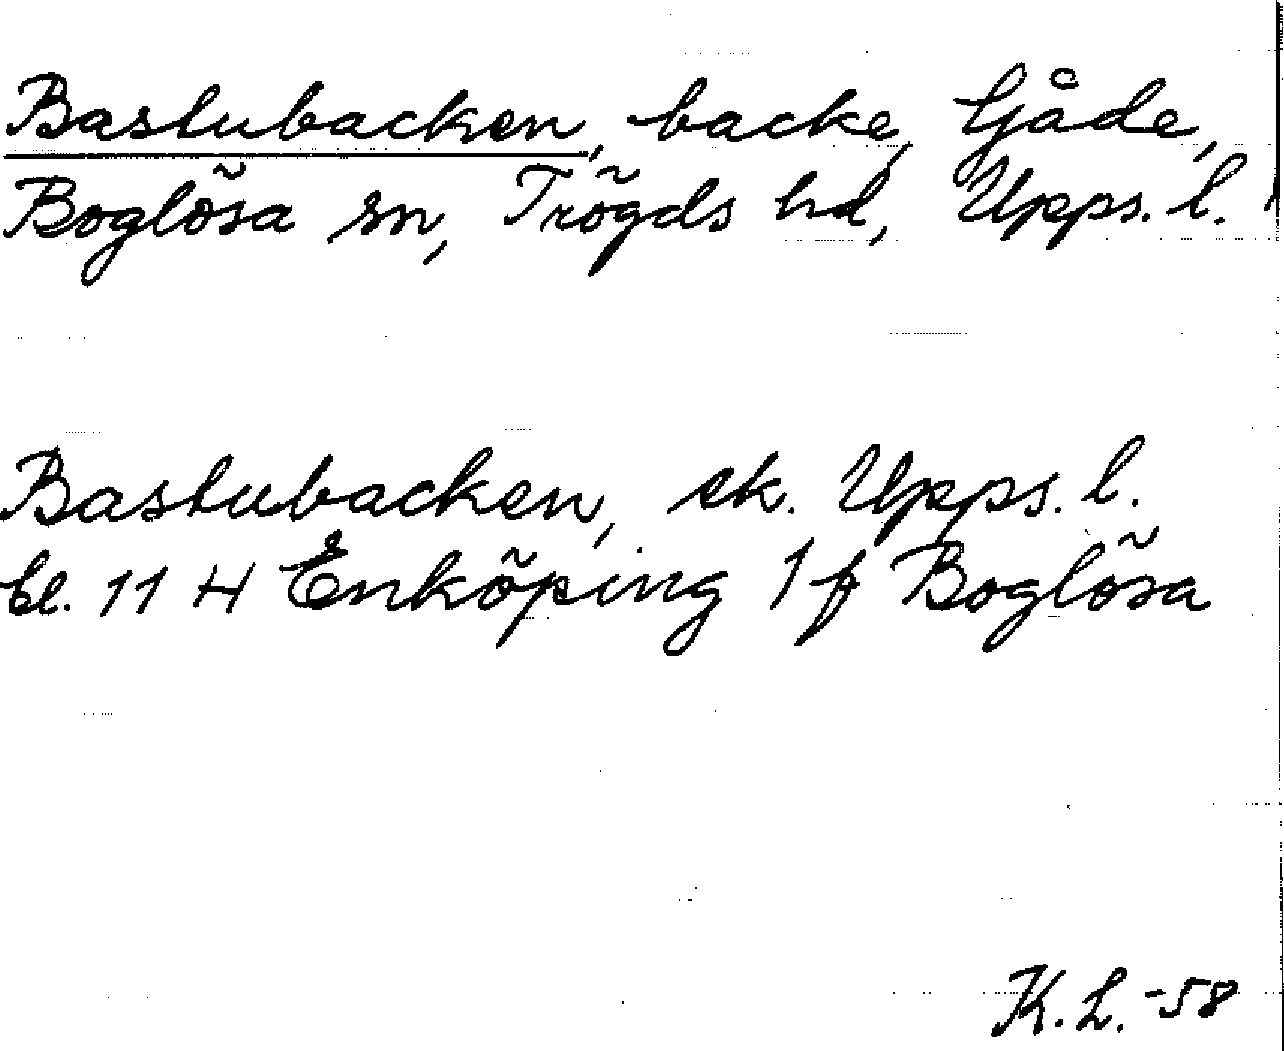 Bastubacken, backe, Gåde,
Boglösa sn, Trögds hd, Upps. l.
Bastubacken, ek. Upps. l.
bl. 11 H Enköping 1 f Boglösa
K. L. -58